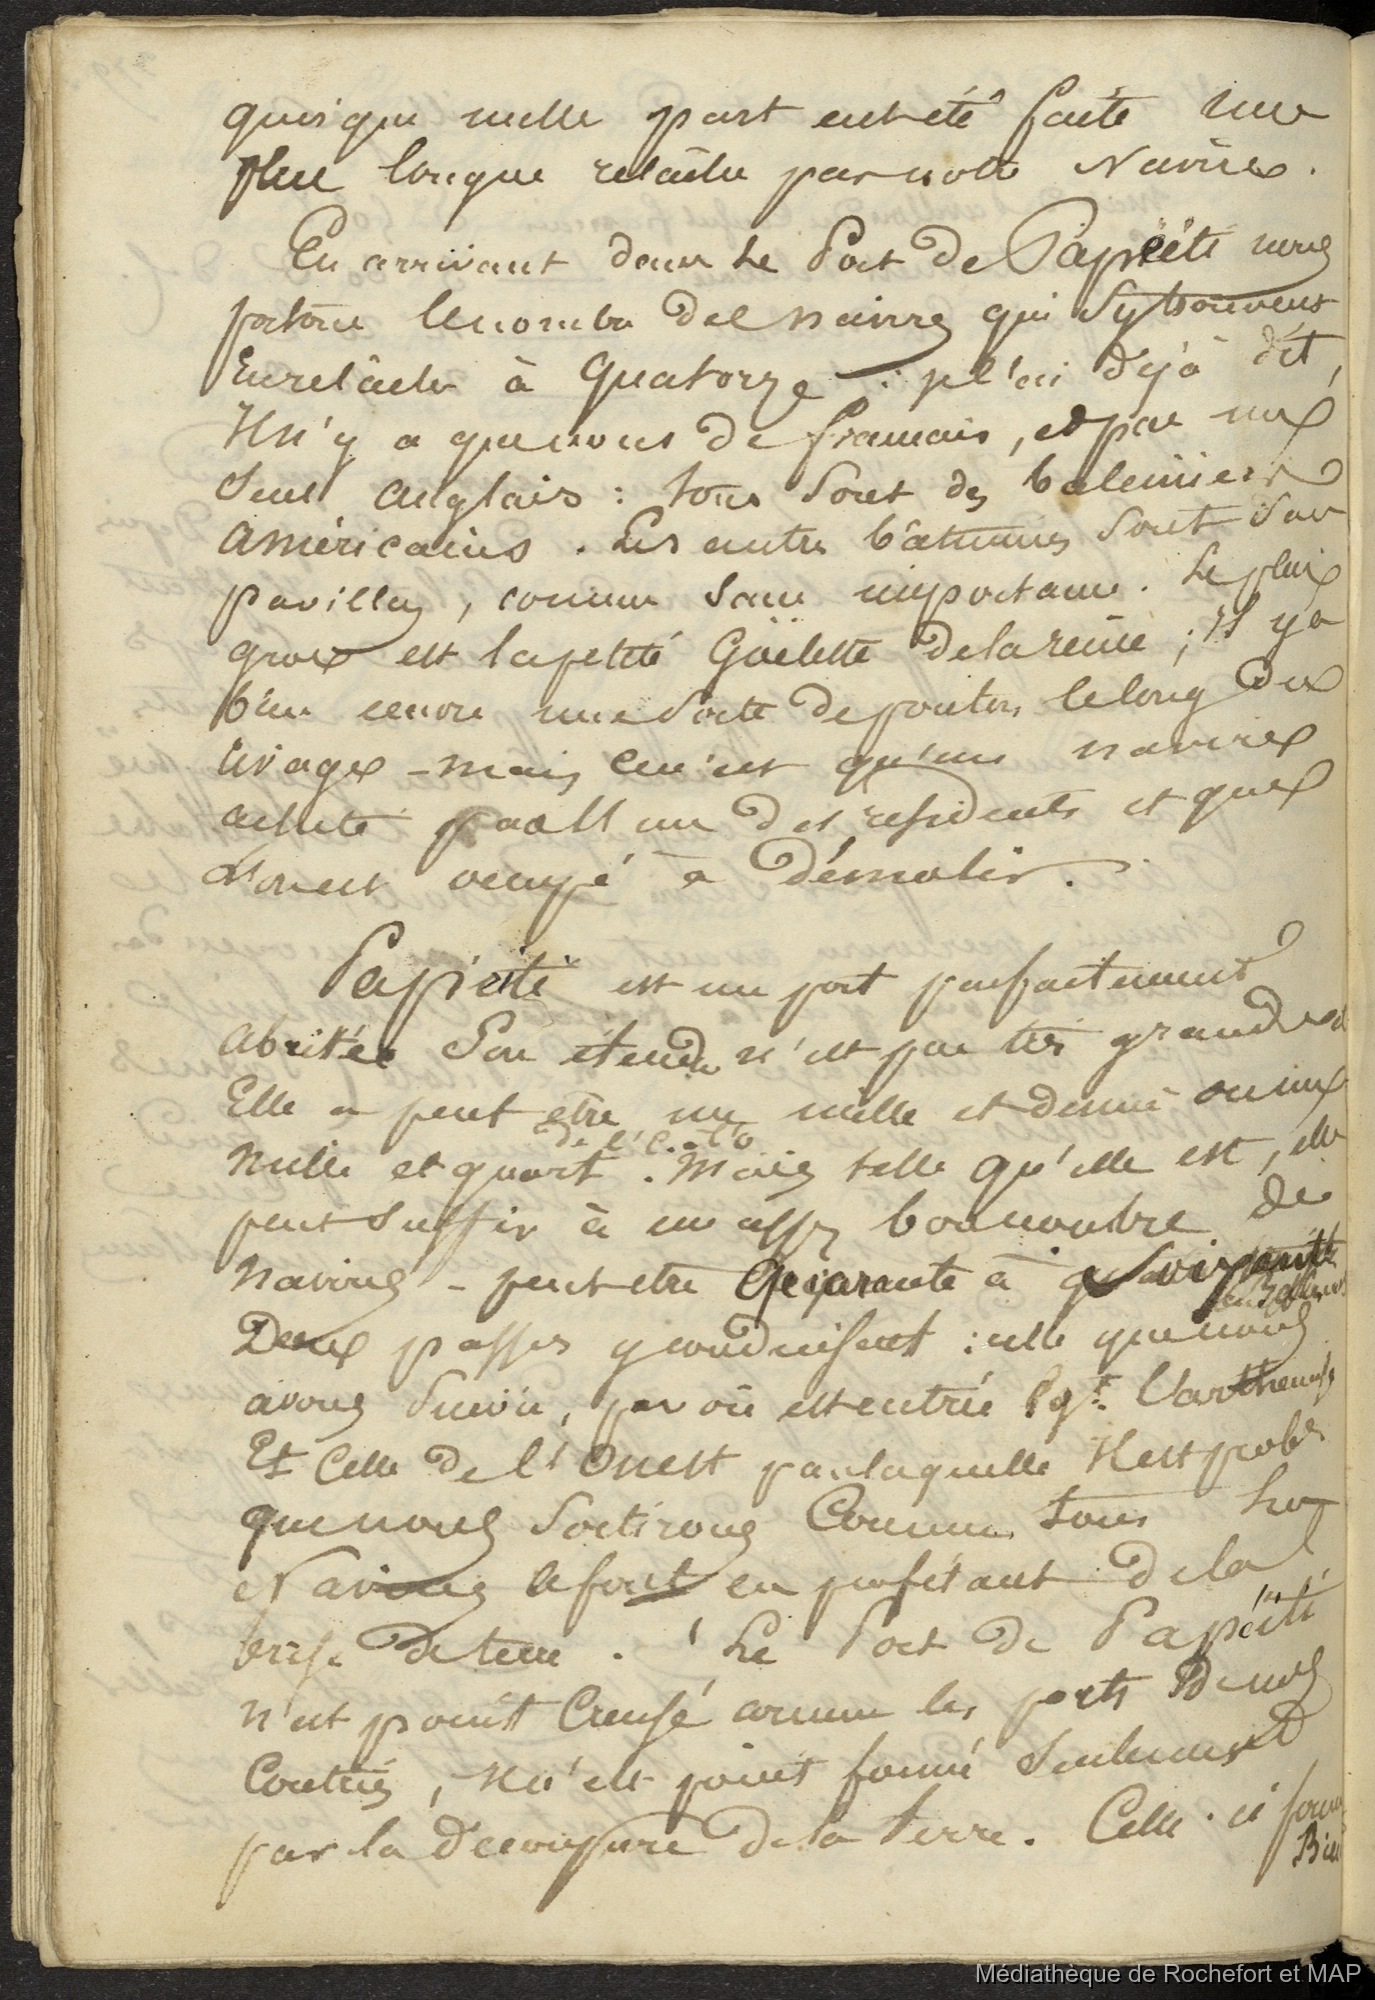 quoique nulle part eut été faite une
plus longue relâche par notre Navire.
En arrivant dans le Port de Papéïti nous
portons le nombre des navires qui s'y trouvent
En relâche à Quatorze : je l'ai déjà dit,
Il n'y a que nous de français, et pas un
Seul anglais : tous sont des baleiniers
américains. Les autres bâtimens sont sans
pavillon, comme sans importance. Le plus
gros est la petite Goëlette de la reine ; Il y a
bien encore une sorte de ponton le long du
rivage - mais ce n'est qu'un navire
acheté par un des residents et que
l'on est occupé à démolir.
Papéïti est un port parfaitement
abrité. Son étendu n'est pas très grande
Elle a peut être un mille et demie ou un
de l'E. à l'O
mille et quart. Mais telle qu'elle est, elle
peut suffir à un assez bon nombre de
navires - peut etre Quarante à soixante
Deux passes y conduisent : celle que nous
avons suivie, par où est entrée l'Arthemise
Et Celle de l'Ouest par laquelle Il est probe
que nous sortirons Comme tous les
Navires le font en profitant de la
brise de terre. Le Port de Papéïti
n'est point Creusé comme les ports de nos
Contrées, n'est point formé seulement
par la découpure de la terre. Celle-ci forme
Bien